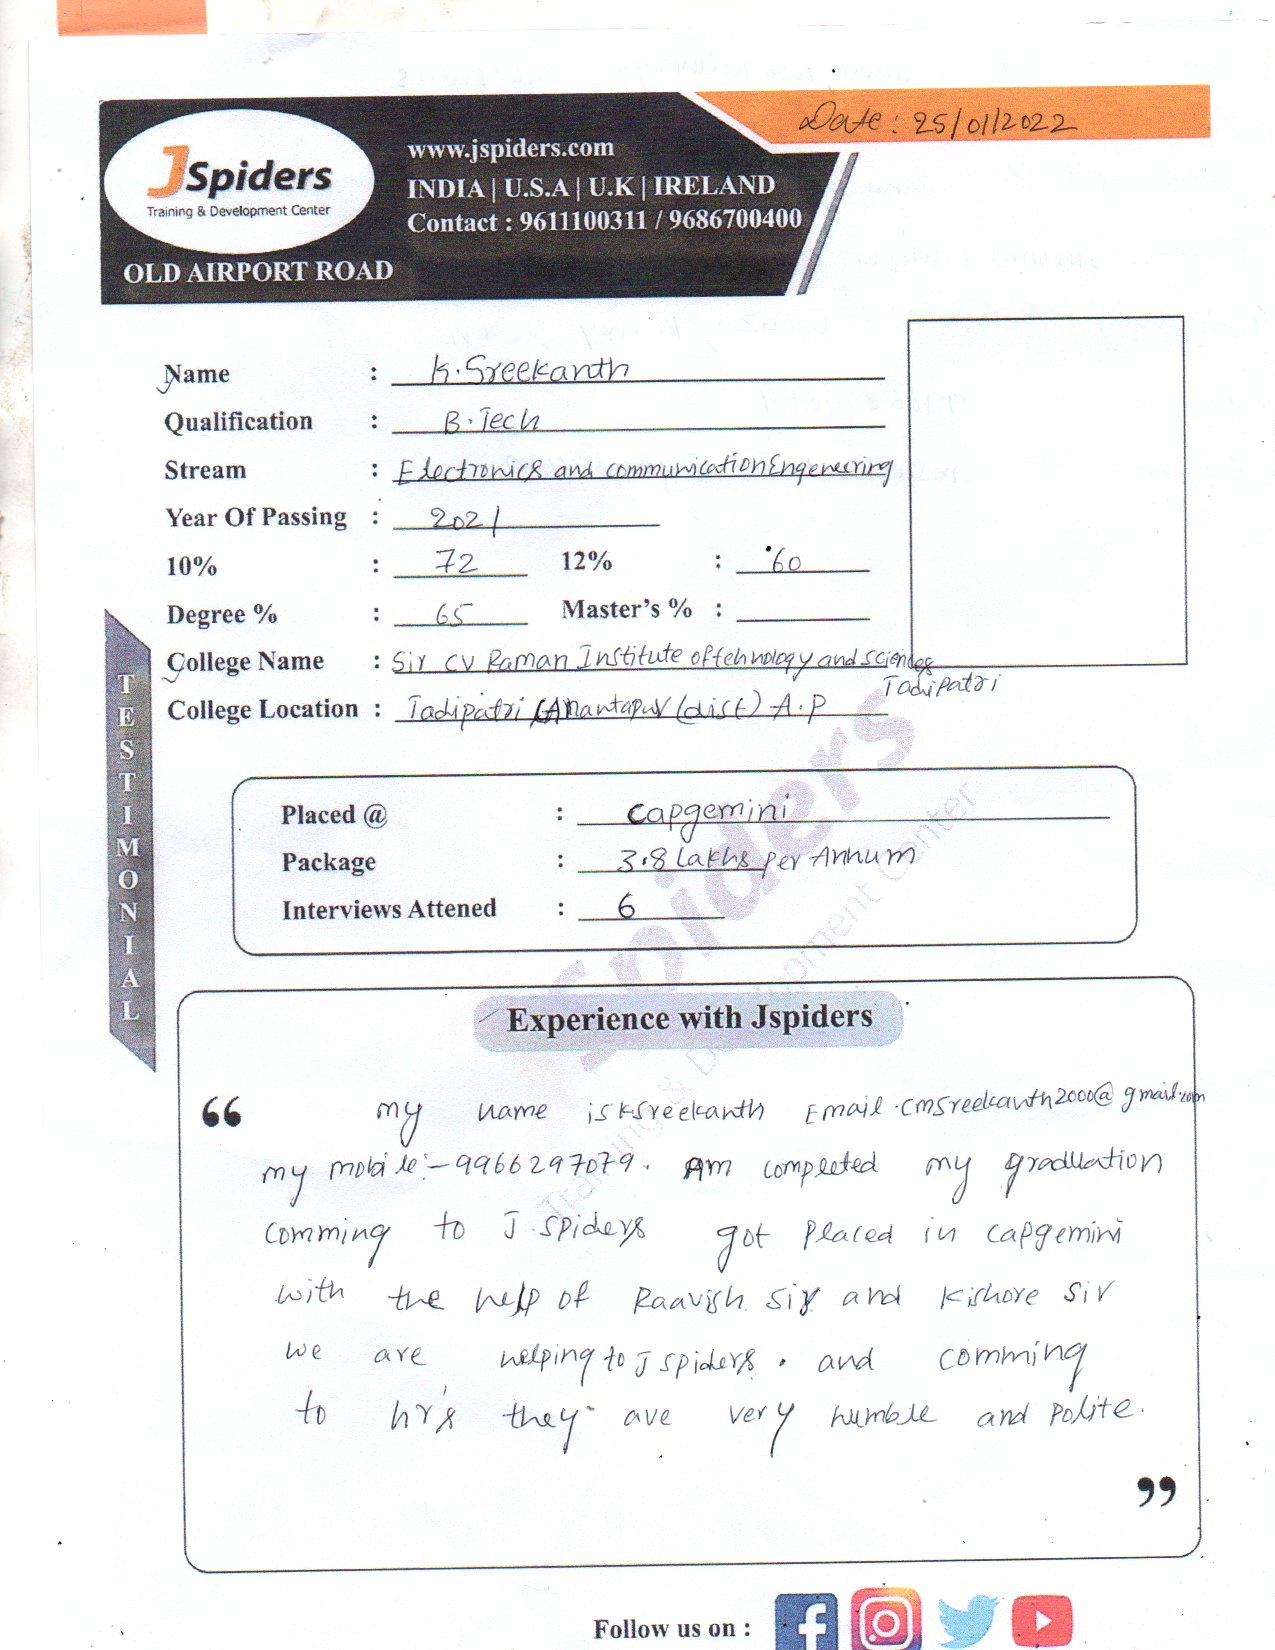 Date: 25/01/2022
JSpiders
Training & Development Center
OLD AIRPORT ROAD
www.jspiders.com
INDIA | U.S.A | U.K | IRELAND
Contact : 9611100311 / 9686700400
Name : K.Sreekanth
Qualification : B.Tech
Stream : Electronics and communication Engeneering
Year Of Passing : 2021
10% : 72 12% : 60
Degree % : 65 Master's % :
College Name : Sir CV Raman Institute of tehnology and sciences
Tadipatri
College Location : Tadipatri, Anantapur (dist) A.P
TESTIMONIAL
Placed @ : Capgemini
Package : 3.8 Lakhs per Annum
Interviews Attened : 6
Experience with Jspiders
“ my name is KSreekanth Email.cmsreekanth2000@gmail.com
my mobile:-9966297079. Am completed my graduation
comming to J.spiders got placed in capgemini
with the help of Raavish sir and Kishore sir
we are helping to J spiders. and comming
to hr's they are very humble and polite.
”
Spiders
Training & Development Center
Follow us on :